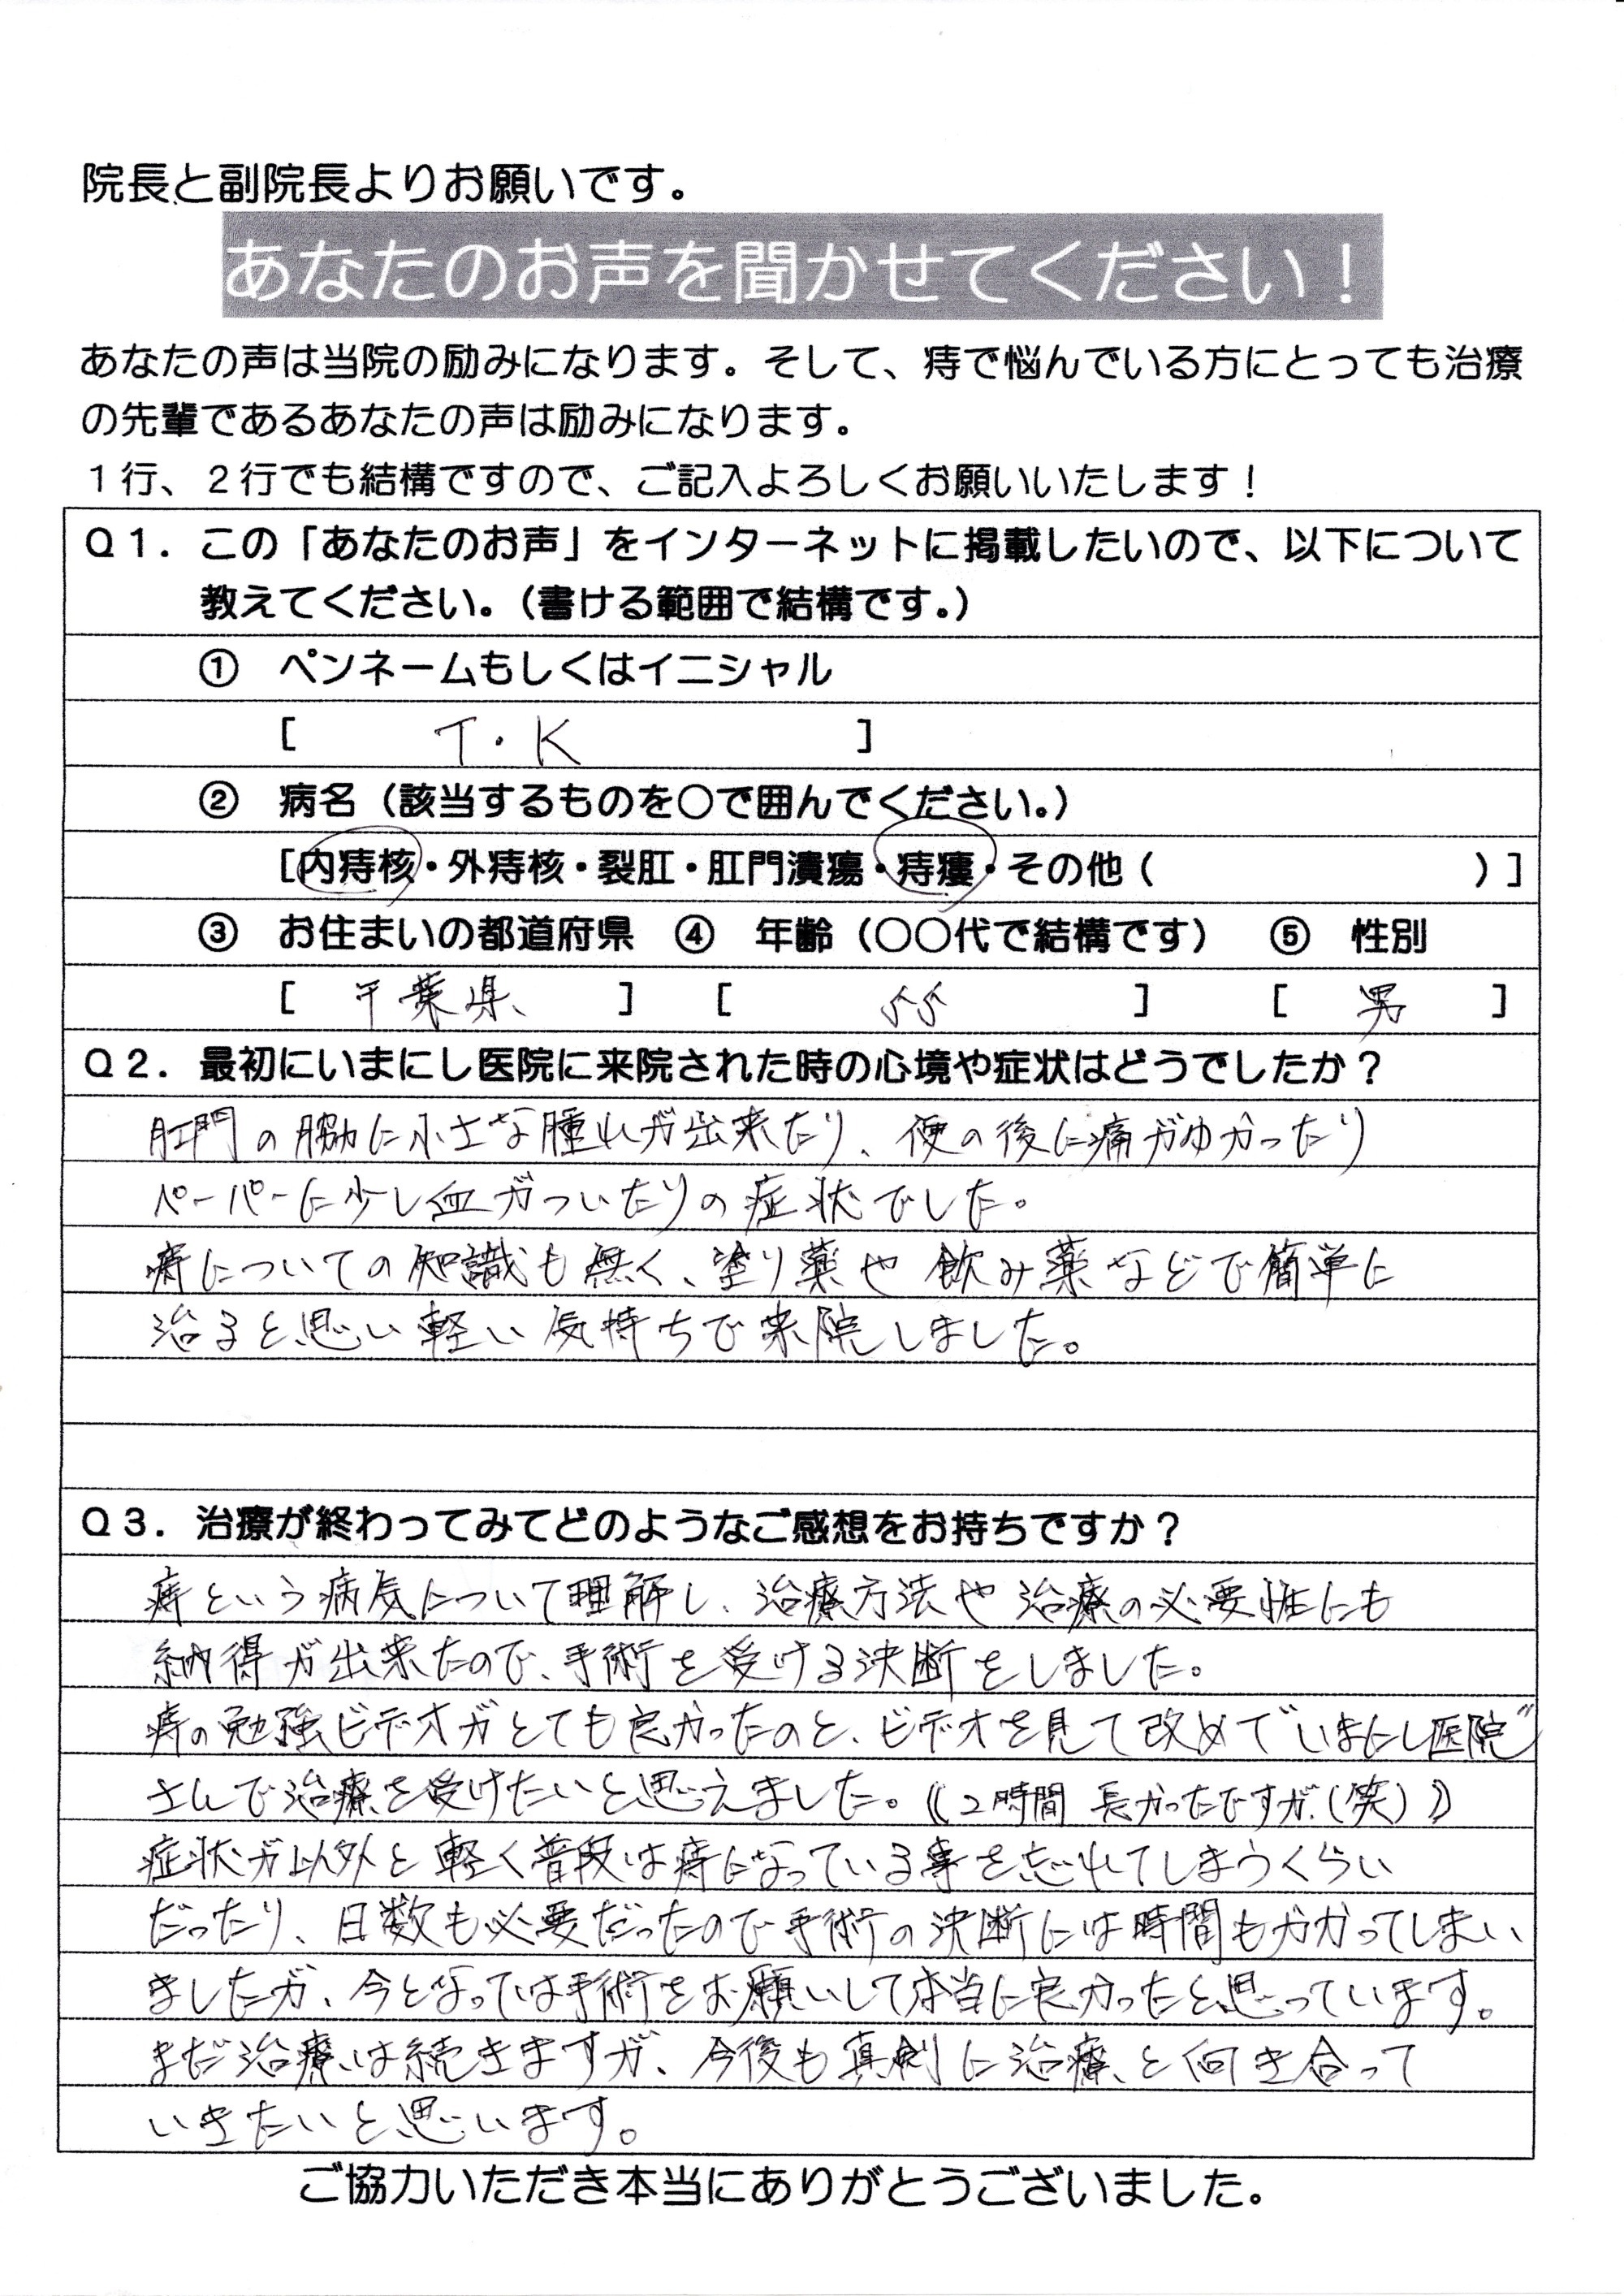 院長と副院長よりお願いです。
あなたのお声を聞かせてください！
あなたの声は当院の励みになります。そして、痔で悩んでいる方にとっても治療
の先輩であるあなたの声は励みになります。
１行、２行でも結構ですので、ご記入よろしくお願いいたします！
Ｑ１．この「あなたのお声」をインターネットに掲載したいので、以下について
教えてください。（書ける範囲で結構です。）
① ペンネームもしくはイニシャル
[ T・K ]
② 病名（該当するものを○で囲んでください。）
[内痔核・外痔核・裂肛・肛門潰瘍・痔瘻・その他（ ）]
③ お住まいの都道府県 ④ 年齢（○○代で結構です） ⑤ 性別
[ 千葉県 ] [ 55 ] [ 男 ]
Ｑ２．最初にいまにし医院に来院された時の心境や症状はどうでしたか？
肛門の脇に小さな腫れが出来たり、便の後に痛がゆかったり
ペーパーに少し血がついたりの症状でした。
痔についての知識も無く、塗り薬や飲み薬などで簡単に
治ると思い軽い気持ちで来院しました。
Ｑ３．治療が終わってみてどのようなご感想をお持ちですか？
痔という病気について理解し、治療方法や治療の必要性にも
納得が出来たので、手術を受ける決断をしました。
痔の勉強ビデオがとても良かったのと、ビデオを見て改めて"いまにし医院"
さんで治療を受けたいと思えました。（（2時間 長かったですが（笑））
症状が以外と軽く普段は痔になっている事を忘れてしまうくらい
だったり、日数も必要だったので手術の決断には時間もかかってしまい
ましたが、今となっては手術をお願いして本当に良かったと思っています。
まだ治療は続きますが、今後も真剣に治療と向き合って
いきたいと思います。
ご協力いただき本当にありがとうございました。